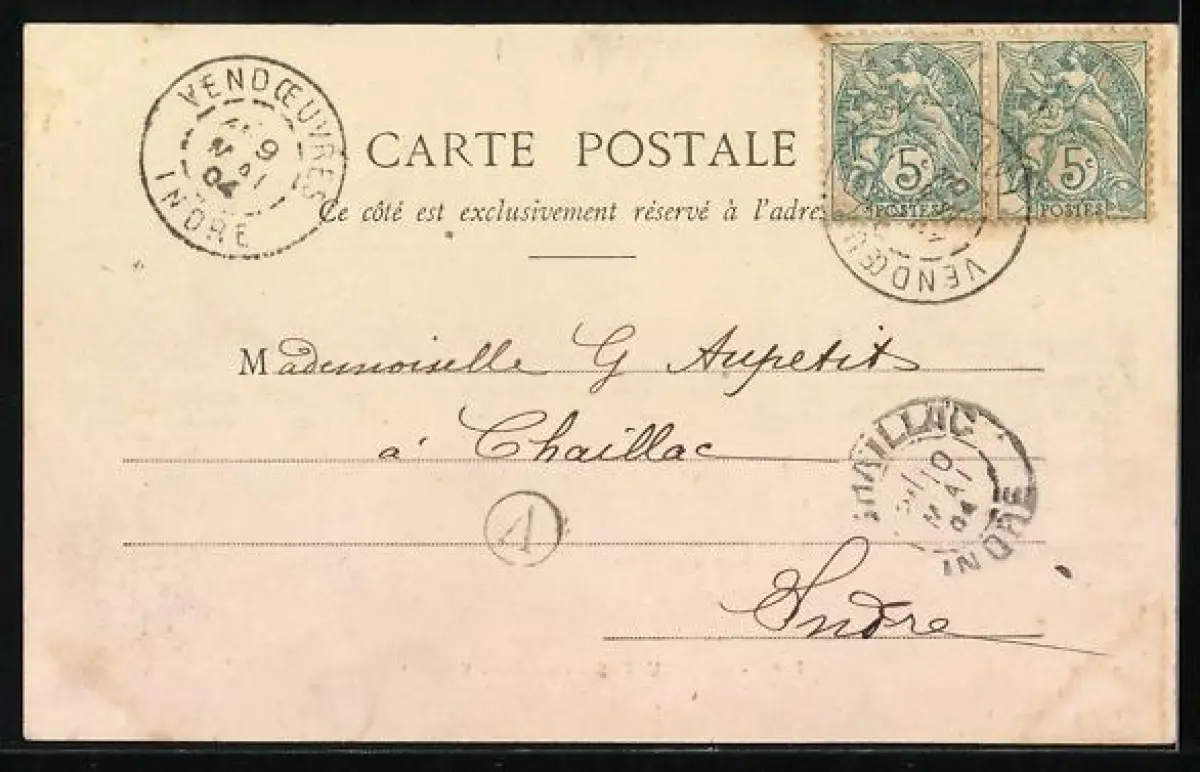 VENDŒUVRES
9
MAI
04
INDRE
CARTE POSTALE
Ce côté est exclusivement réservé à l'adre
5c
POSTES
5c
POSTES
VENDŒU
Mademoiselle G Aupetit
à Chaillac
CHAILLAC
10
MAI
04
INDRE
A
Indre